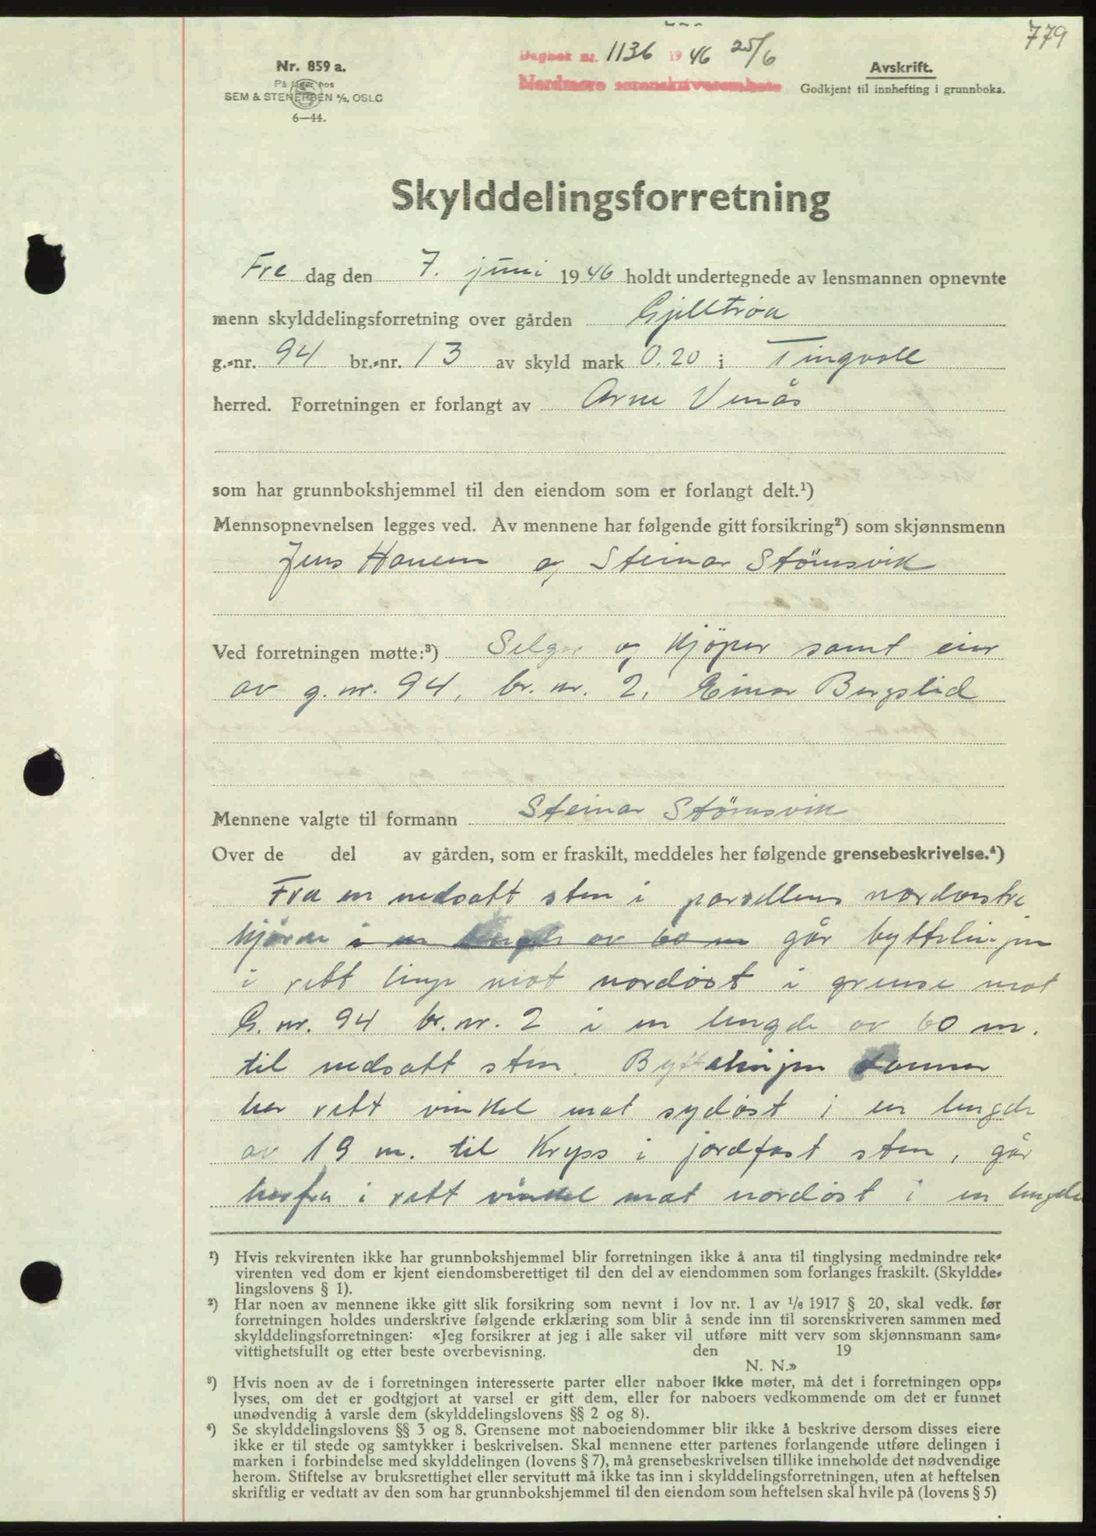 779
Nr. 859 a.
På lager hos
SEM & STENERSEN A/S, OSLO
6—44.
Dagbok nr. 1136 1946 25/6
Nordmøre sorenskriverembete
Avskrift.
Godkjent til innhefting i grunnboka.
Skylddelingsforretning
Fre dag den 7. juni 1946 holdt undertegnede av lensmannen opnevnte
menn skylddelingsforretning over gården Gjelltrøa
g.-nr. 94 br.-nr. 13 av skyld mark 0.20 i Tingvoll
herred. Forretningen er forlangt av Arne Venås
som har grunnbokshjemmel til den eiendom som er forlangt delt.¹)
Mennsopnevnelsen legges ved. Av mennene har følgende gitt forsikring²) som skjønnsmenn
Jens Hanem og Steinar Stömsvik
Ved forretningen møtte:³) Selger og kjöper samt eier
av g. nr. 94, br. nr. 2, Einar Bergslid
Mennene valgte til formann Steinar Stömsvik
Over de del av gården, som er fraskilt, meddeles her følgende grensebeskrivelse.⁴)
Fra en nedsatt sten i parsellens nordvestre
hjörne i en lengde av 60 m går byttelinjen
i rett linje mot nordöst i grense mot
G. nr. 94 br. nr. 2 i en lengde av 60 m.
til nedsatt sten. Byttelinjen danner
her rett vinkel mot sydöst i en lengde
av 19 m. til Kryss i jordfast sten, går
herfra i rett vinkel mot nordöst i en lengde
¹) Hvis rekvirenten ikke har grunnbokshjemmel blir forretningen ikke å anta til tinglysing medmindre rek-
virenten ved dom er kjent eiendomsberettiget til den del av eiendommen som forlanges fraskilt. (Skyldde-
lingslovens § 1).
²) Har noen av mennene ikke gitt slik forsikring som nevnt i lov nr. 1 av 1/6 1917 § 20, skal vedk. før
forretningen holdes underskrive følgende erklæring som blir å sende inn til sorenskriveren sammen med
skylddelingsforretningen: «Jeg forsikrer at jeg i alle saker vil utføre mitt verv som skjønnsmann sam-
vittighetsfullt og etter beste overbevisning. den 19
N. N.»
³) Hvis noen av de i forretningen interesserte parter eller naboer ikke møter, må det i forretningen opp-
lyses, om det er godtgjort at varsel er gitt dem, eller for naboers vedkommende om det er funnet
unødvendig å varsle dem (skylddelingslovens §§ 2 og 8).
⁴) Se skylddelingslovens §§ 3 og 8. Grensene mot naboeiendommer blir ikke å beskrive dersom disses eiere
ikke er til stede og samtykker i beskrivelsen. Skal mennene etter partenes forlangende utføre delingen i
marken i forbindelse med skylddelingen (lovens § 7), må grensebeskrivelsen tillike inneholde det nødvendige
herom. Stiftelse av bruksrettighet eller servitutt må ikke tas inn i skylddelingsforretningen, uten at heftelsen
skriftlig er vedtatt av den som har grunnbokshjemmel til den eiendom som heftelsen skal hvile på (lovens § 5)